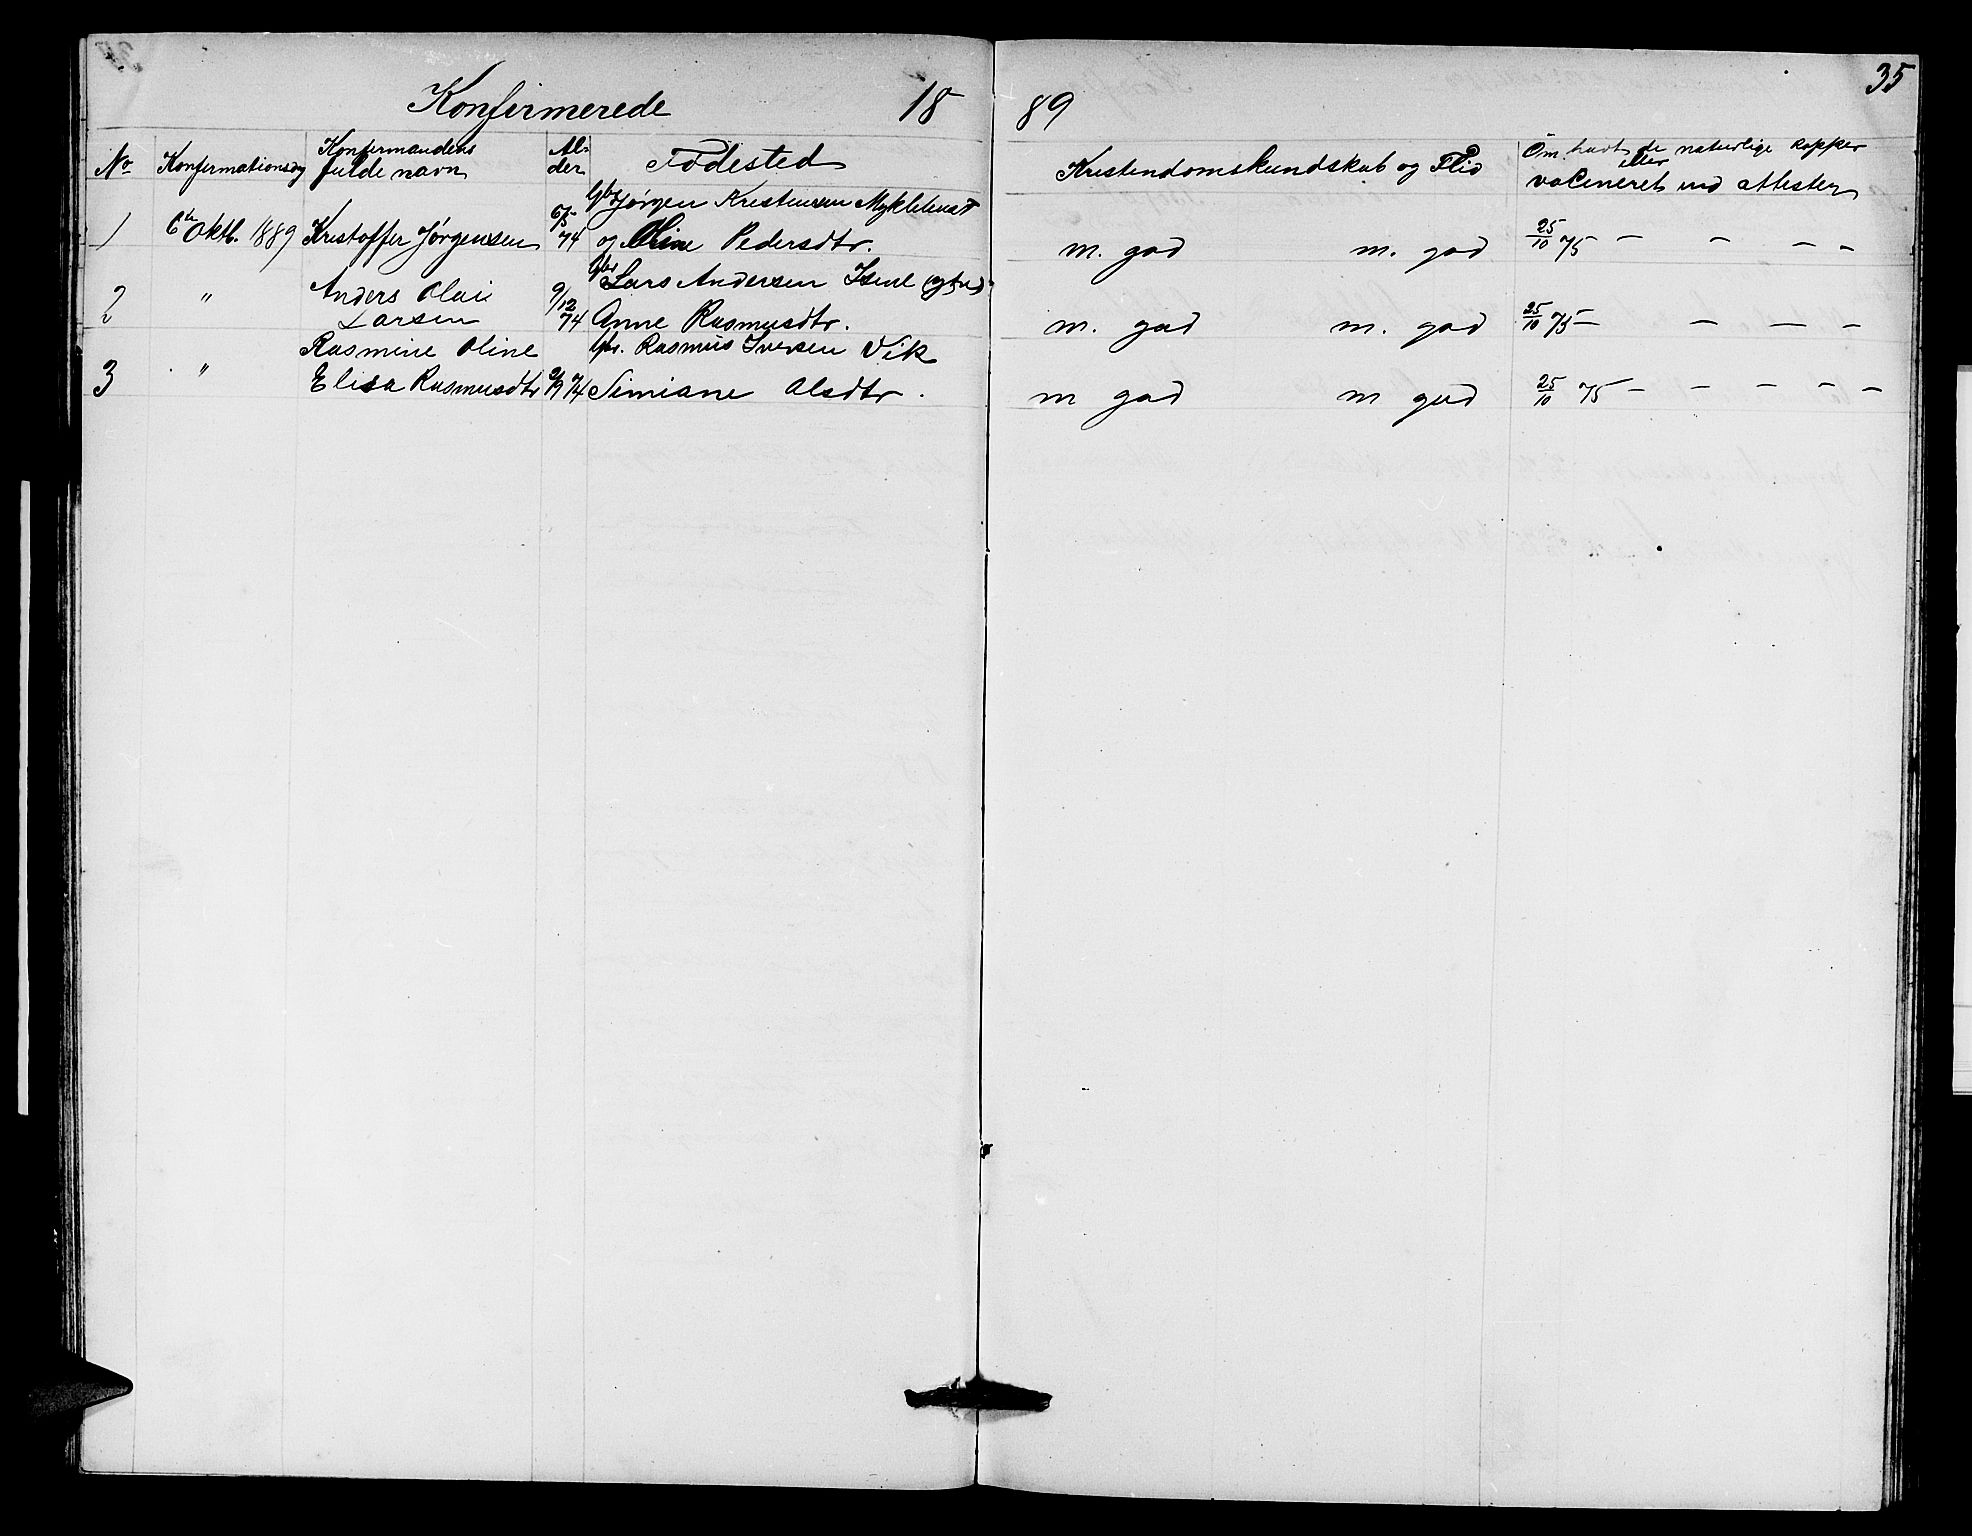 35
Konfirmerede 18 89
No Konfirmationsdag Konfirmandens fulde navn Al- der Fødested Kristendomskundskab og Flid Om havt de naturlige kopper eller vaccineret med attester
Gbr Jørgen Kristensen Myklebust
1 6te Oktb. 1889 Kristoffer Jørgensen 6/5 74 og Oline Pedersdtr. m. god m. god 25/10 75 — — — —
Gbr Lars Andersen
2 " Anders Olai Larsen 9/12 74 Anne Rasmusdtr. m. god m. god 25/10 75 — — — —
Rasmine Oline Gbr. Rasmus Iversen Vik
3 " Elisa Rasmusdtr 2/9 74 Simiane Olsdtr. m god m god 25/10 75 — — — — —